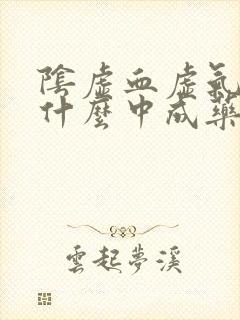 陰虛血虛氣
什麼中成藥
雲起夢溪